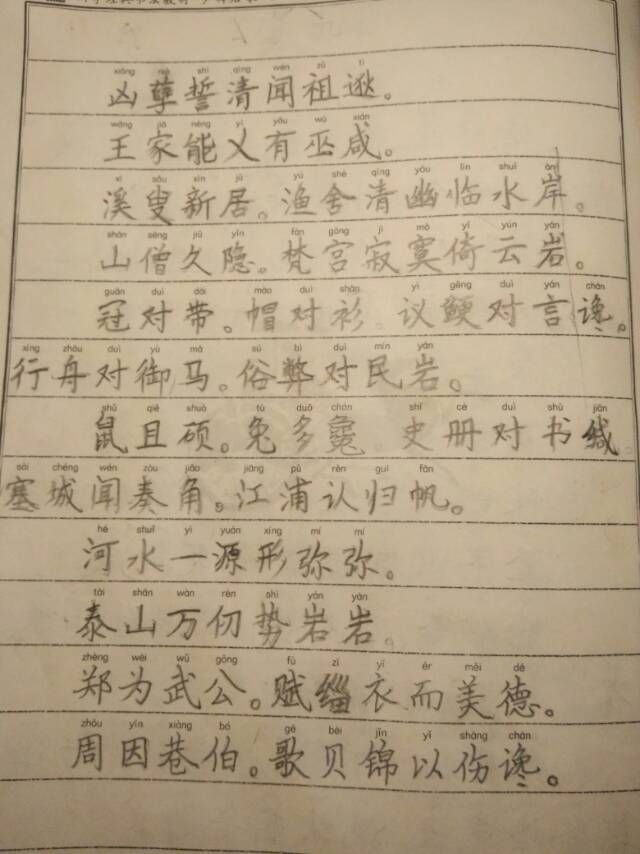 xiōng niè shì qīng wén zǔ tì
凶孽誓清闻祖逖。
wáng jiā néng yì yǒu wū xián
王家能乂有巫咸。
xī sǒu xīn jū yú shè qīng yōu lín shuǐ àn
溪叟新居。渔舍清幽临水岸。
shān sēng jiǔ yǐn fàn gōng jì mò yǐ yún yán
山僧久隐。梵宫寂寞倚云岩。
guān duì dài mào duì shān yì gěng duì yán chán
冠对带。帽对衫。议鲠对言谗。
xíng zhōu duì yù mǎ sú bì duì mín yán
行舟对御马。俗弊对民岩。
shǔ qiě shuò tù duō chán shǐ cè duì shū jiān
鼠且硕。兔多毚。史册对书缄
sài chéng wén zòu jiǎo jiāng pǔ rèn guī fān
塞城闻奏角。江浦认归帆。
hé shuǐ yì yuán xíng mí mí
河水一源形弥弥。
tài shān wàn rèn shì yán yán
泰山万仞势岩岩。
zhèng wèi wǔ gōng fù zī yī ér měi dé
郑为武公。赋缁衣而美德。
zhōu yīn xiàng bó gē bèi jǐn yǐ shāng chán
周因巷伯。歌贝锦以伤谗。